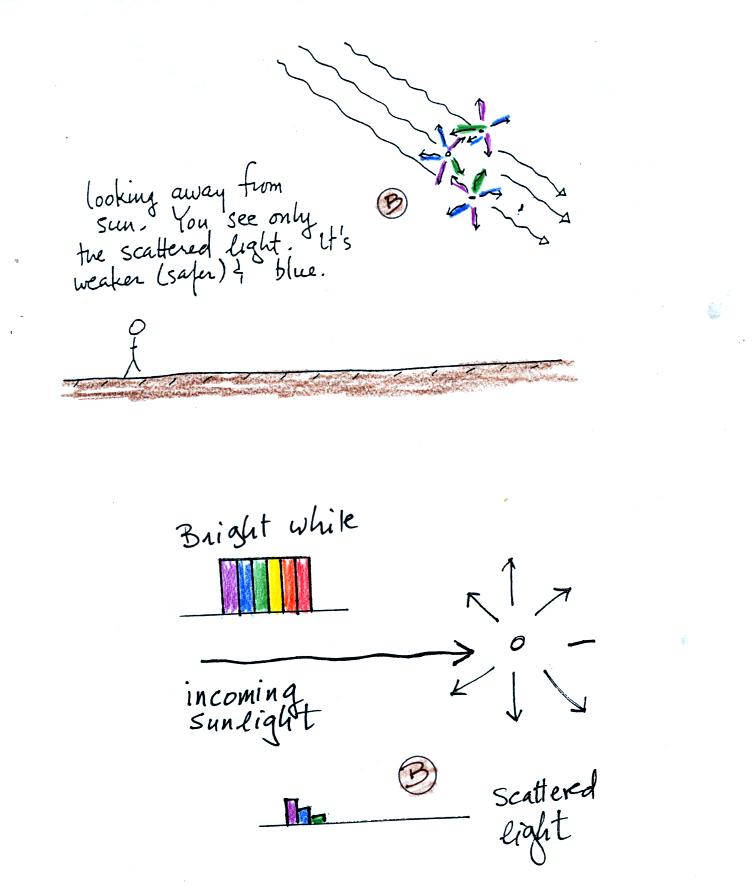 looking away from
sun. You see only
the scattered light. It's
weaker (safer) & blue.
B
Bright white
incoming
sunlight
B
scattered
light